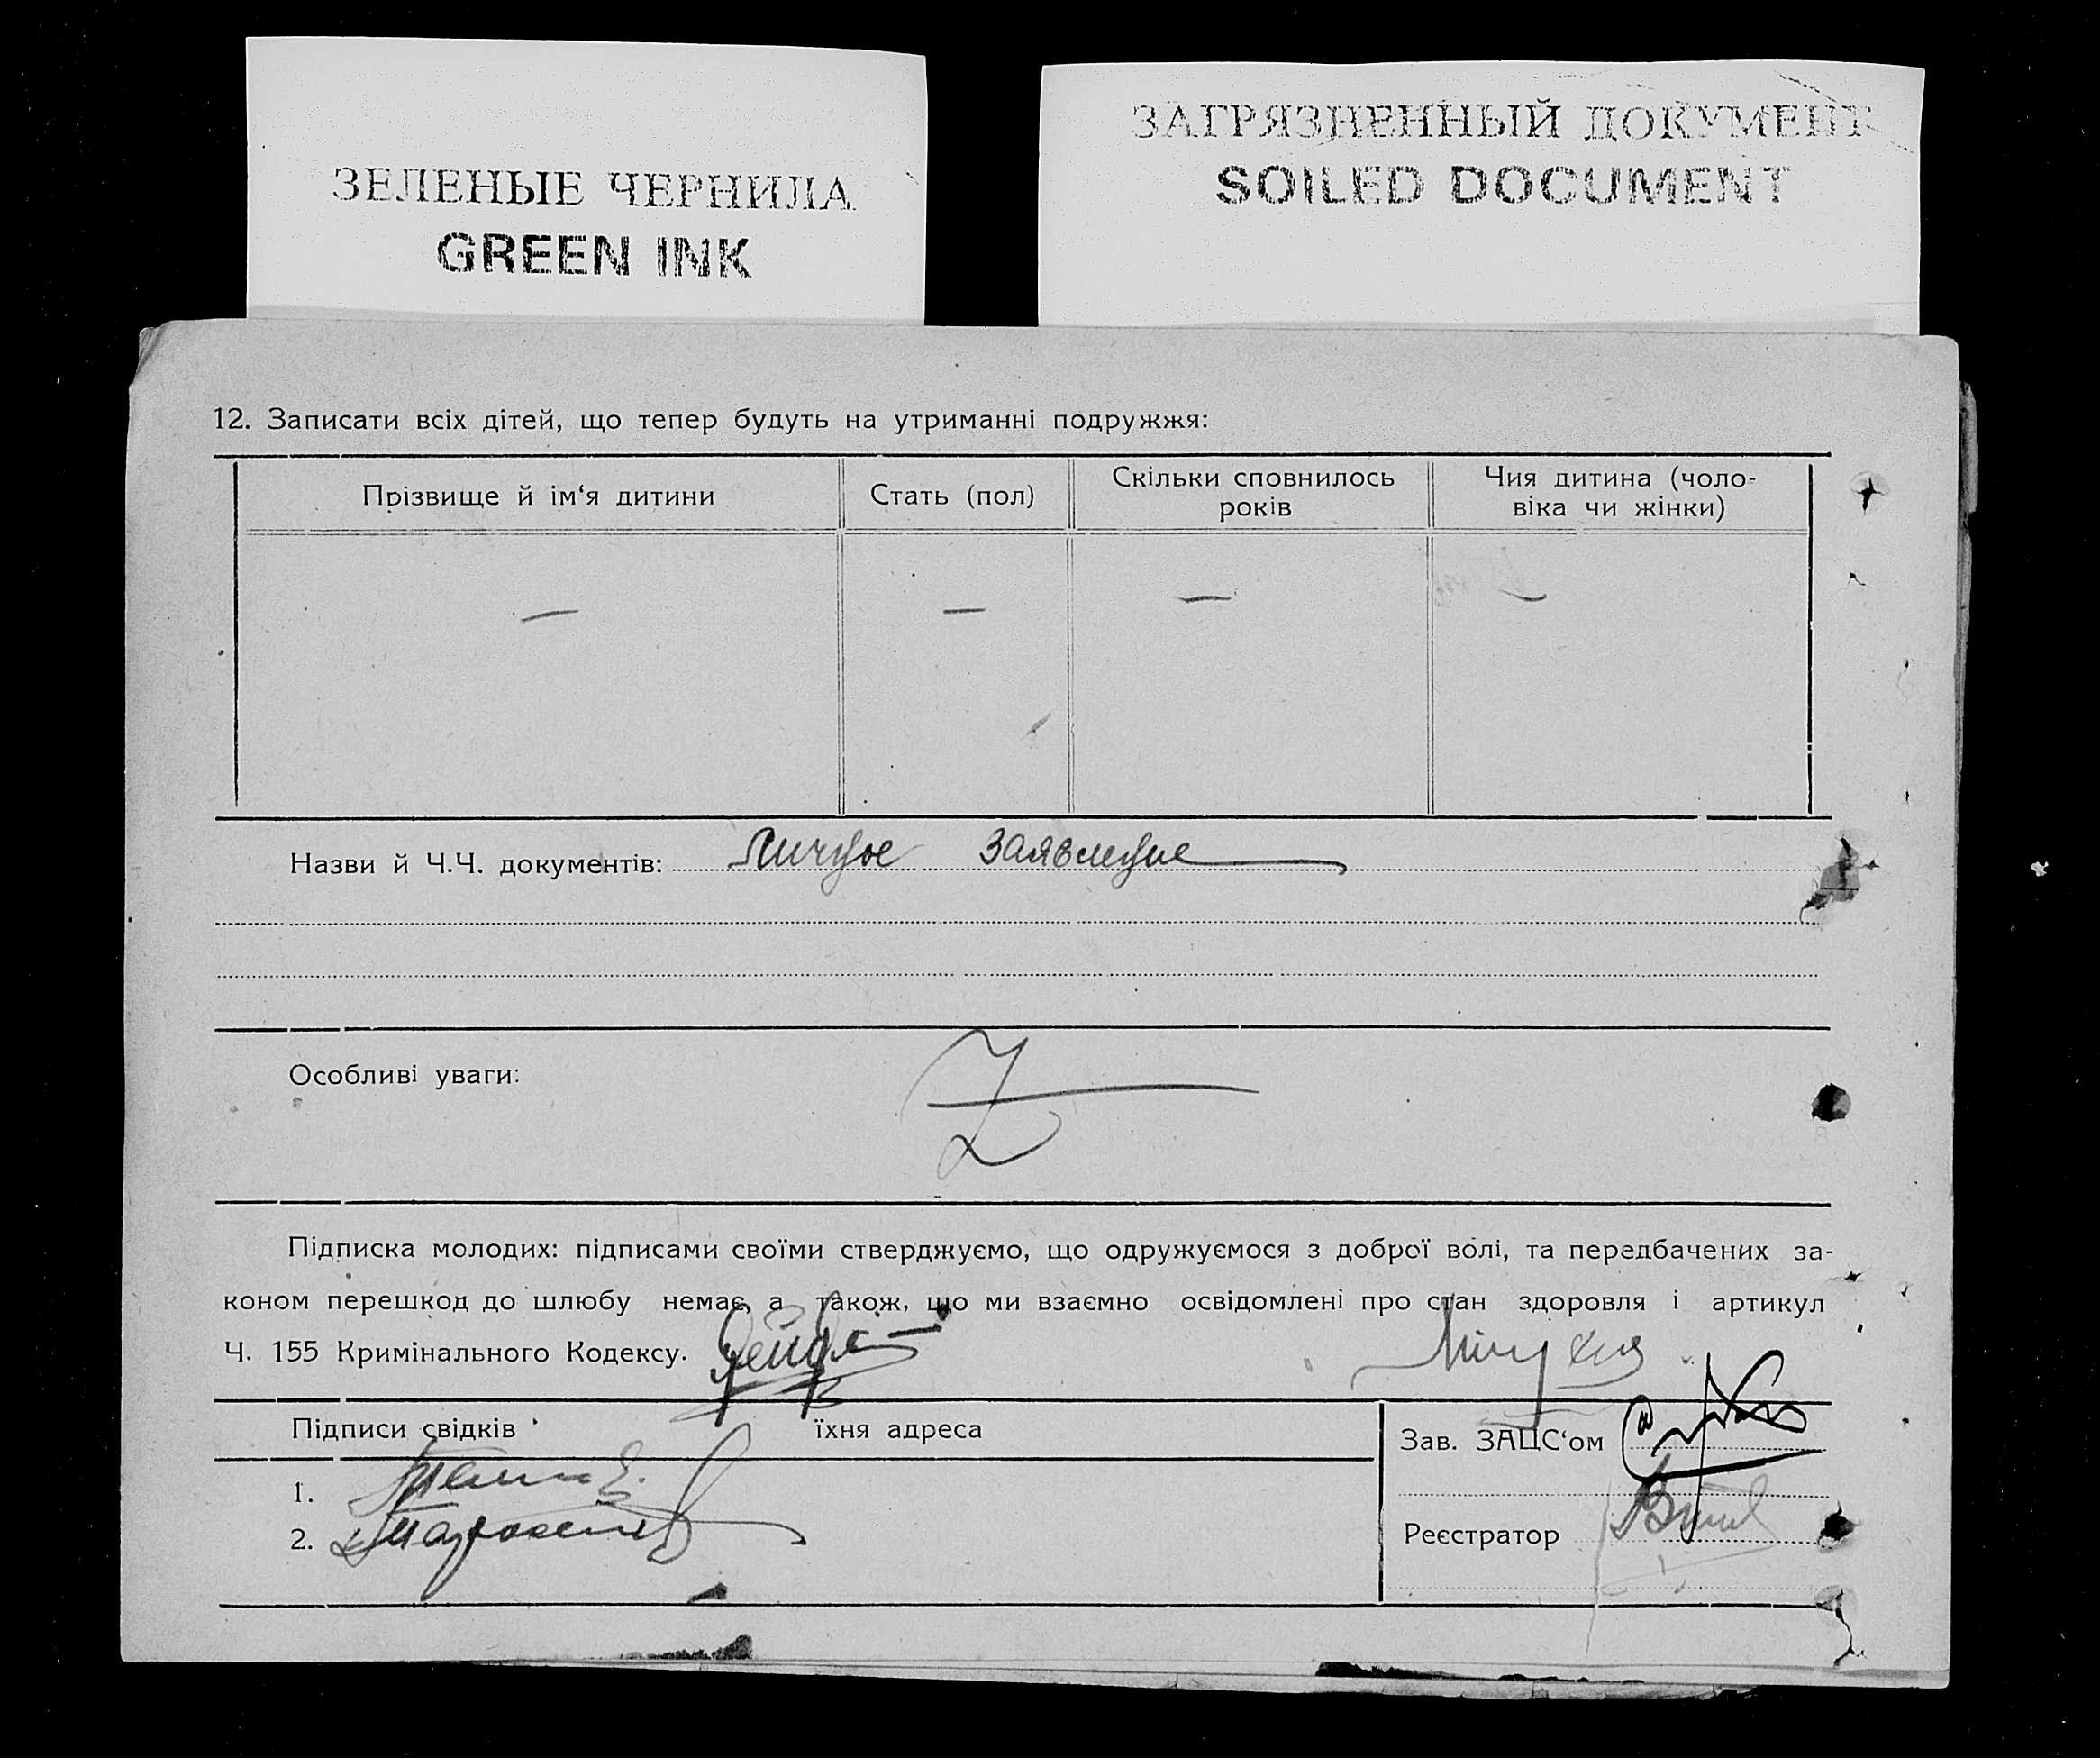 ЗЕЛЕНЫЕ ЧЕРНИЛА
GREEN INK
ЗАГРЯЗНЕННЫЙ ДОКУМЕНТ
SOILED DOCUMENT
12. Записати всіх дітей, що тепер будуть на утриманні подружжя:
Прізвище й ім‘я дитини
Стать (пол)
Скільки сповнилось
років
Чия дитина (чоло-
віка чи жінки)
— — — —
Назви й Ч.Ч. документів: Личное заявление
Особливі уваги:
Підписка молодих: підписами своїми стверджуємо, що одружуємося з доброї волі, та передбачених за-
коном перешкод до шлюбу немає, а також, що ми взаємно освідомлені про стан здоровля і артикул
Ч. 155 Кримінального Кодексу.
Підписи свідків їхня адреса
1.
2.
Зав. ЗАЦС‘ом
Реєстратор